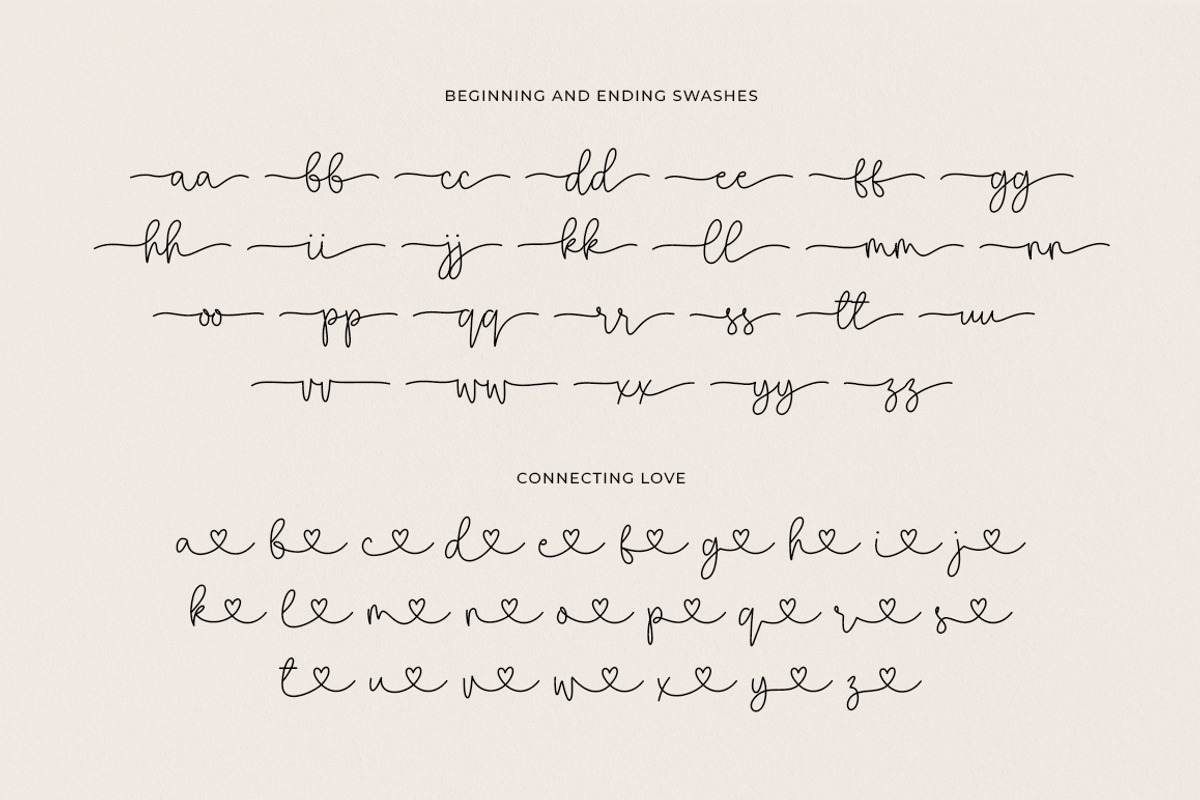 BEGINNING AND ENDING SWASHES
aa bb cc dd ee ff gg
hh ii jj kk ll mm nn
oo pp qq rr ss tt uu
vv ww xx yy zz
CONNECTING LOVE
a b c d e f g h i j
k l m n o p q r s
t u v w x y z